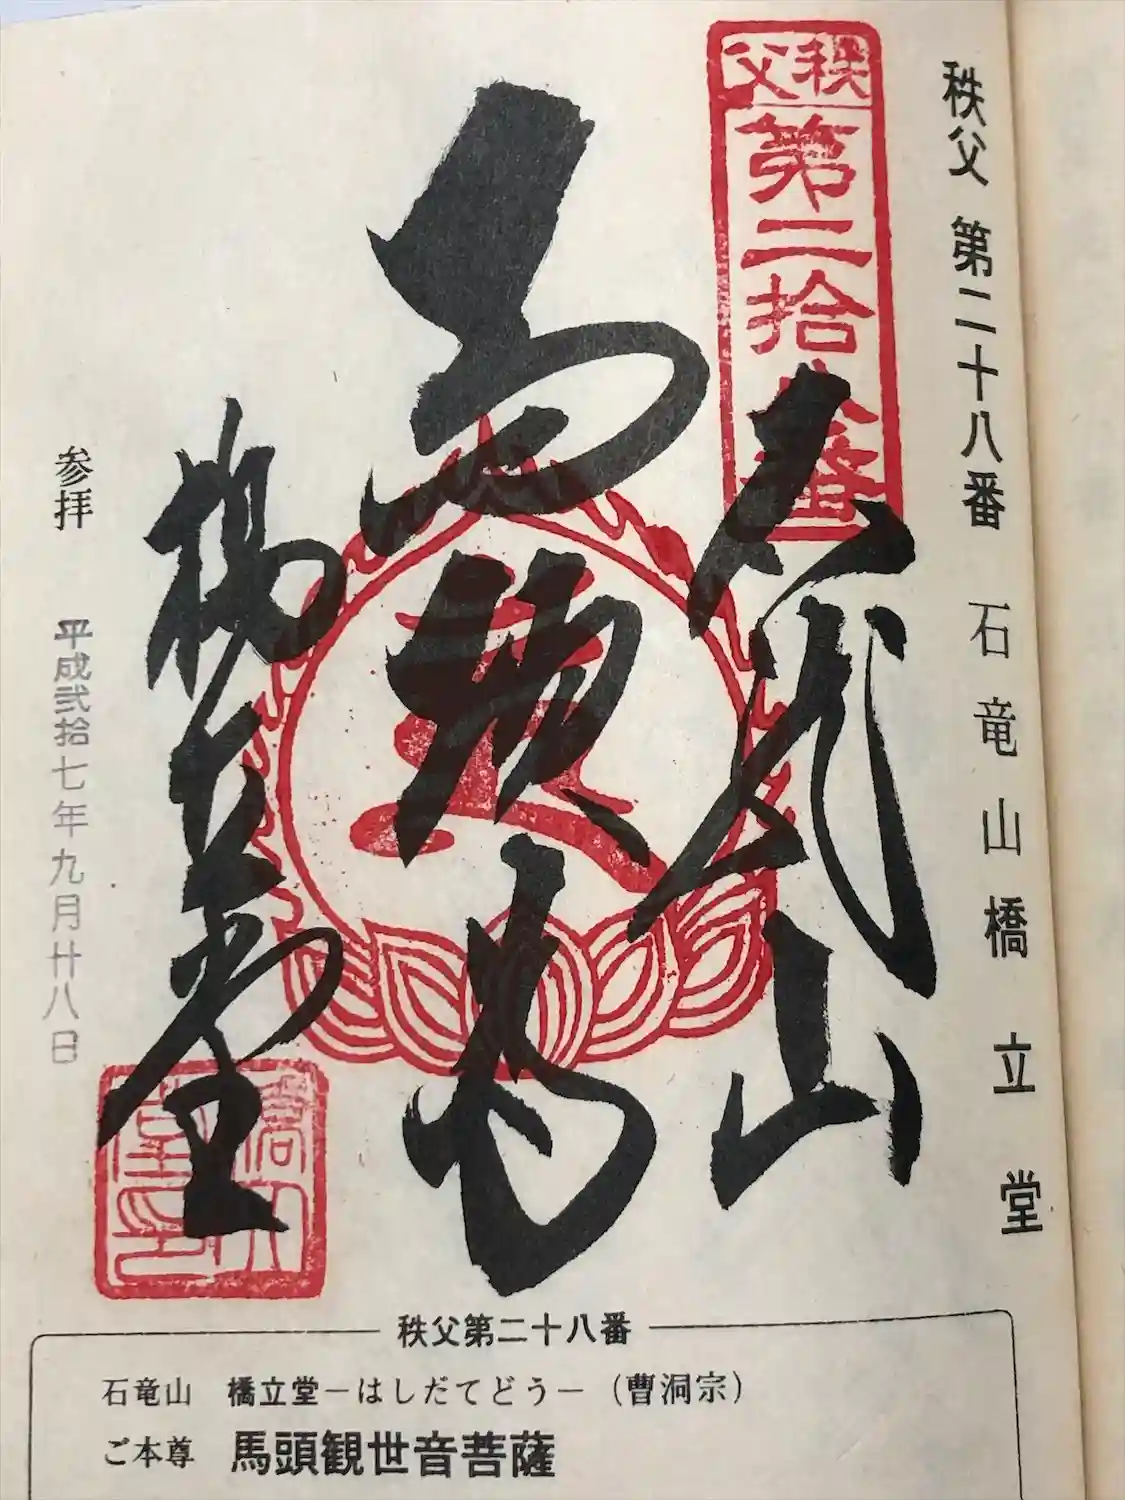 秩父 第二十八番 石竜山橋立堂
秩父
第二拾八番
石竜山
馬頭尊
橋立堂
橋立堂印
参拝 平成弐拾七年九月廿八日
秩父第二十八番
石竜山 橋立堂－はしだてどう－（曹洞宗）
ご本尊 馬頭観世音菩薩